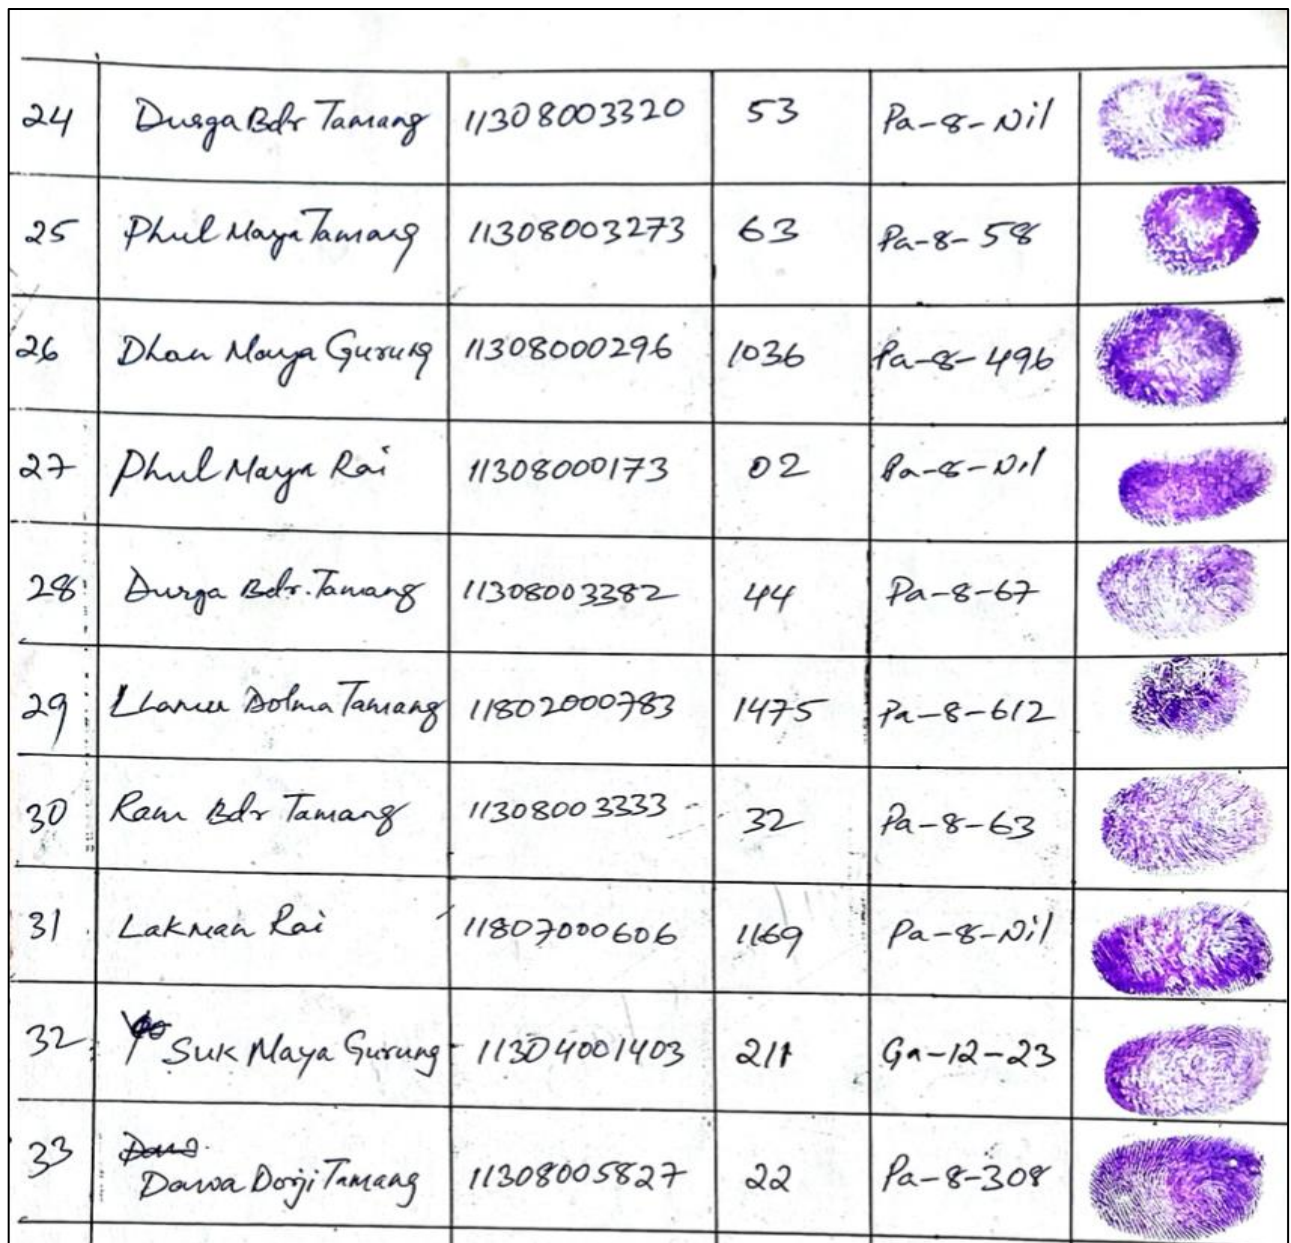 24 Durga Bdr Tamang 11308003320 53 Pa-8-Nil
25 Phul Maya Tamang 11308003273 63 Pa-8-58
26 Dhan Maya Gurung 11308000296 1036 Pa-8-496
27 Phul Maya Rai 11308000173 02 Pa-8-Nil
28 Durga Bdr. Tamang 11308003382 44 Pa-8-67
29 Dolma Tamang 11802000783 1475 Pa-8-612
30 Ram Bdr Tamang 11308003333 32 Pa-8-63
31 Lakman Rai 11807000606 1169 Pa-8-Nil
32 Suk Maya Gurung 11304001403 211 Ga-12-23
33 Dawa Dorji Tamang 11308005827 22 Pa-8-308